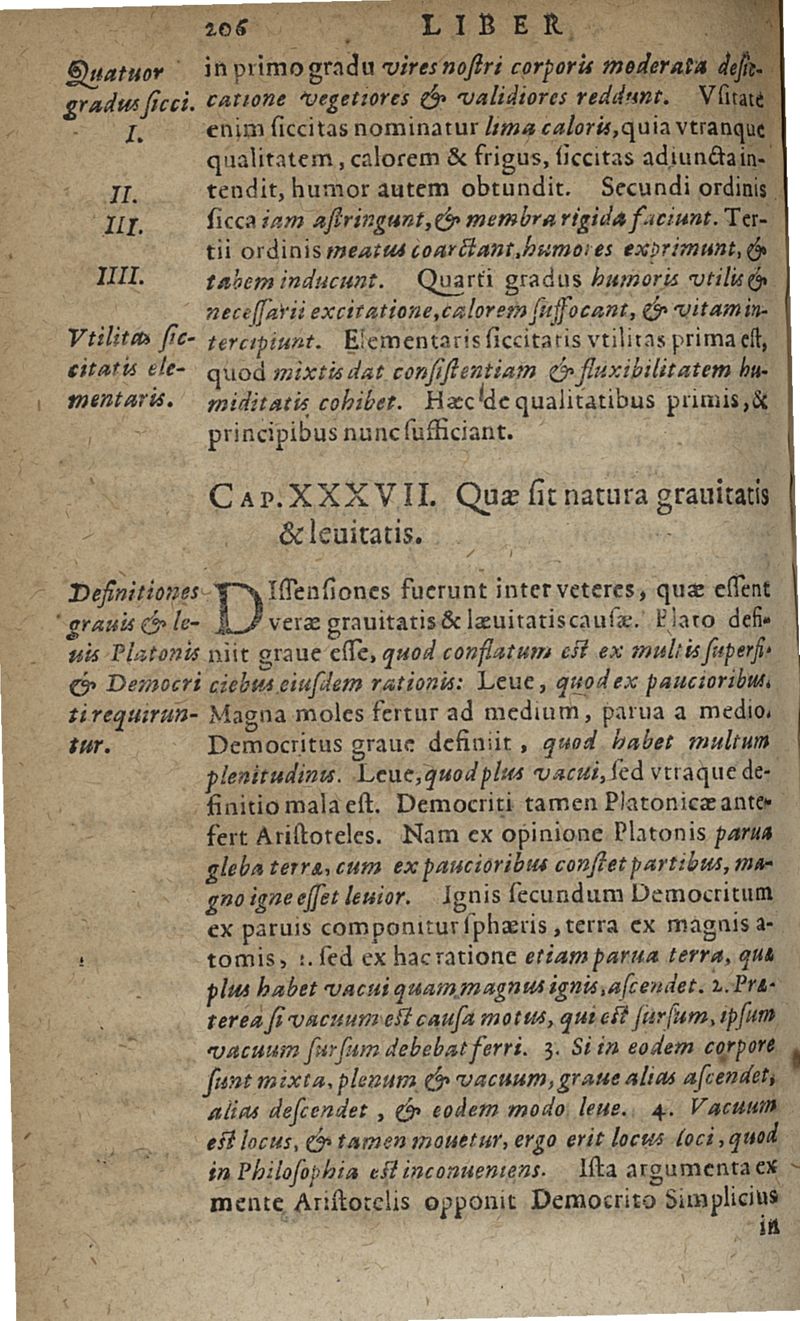 206 LIBER
Quatuor
gradus ſicci.
I.
II.
III.
IIII.
Vtilitas ſic-
citatis ele-
mentaris.
in primo gradu vires noſtri corporis moderata deſic-
catione vegetiores & validiores reddunt. Vſitatè
enim ſiccitas nominatur lima caloris, quia vtranque
qualitatem, calorem & frigus, ſiccitas adiuncta in-
tendit, humor autem obtundit. Secundi ordinis
ſicca iam aſtringunt, & membra rigida faciunt. Ter-
tii ordinis meatus coarctant, humores exprimunt, &
tabem inducunt. Quarti gradus humoris vtilis &
neceſſarii excitatione, calorem ſuffocant, & vitam in-
tercipiunt. Elementaris ſiccitatis vtilitas prima eſt,
quod mixtis dat conſiſtentiam & fluxibilitatem hu-
miditatis cohibet. Hæc de qualitatibus primis, &
principibus nunc ſufficiant.
CAP. XXXVII. Quæ ſit natura grauitatis
& leuitatis.
Definitiones
grauis & le-
uis Platonis
& Democri
ti requirun-
tur.
DIſſenſiones fuerunt inter veteres, quæ eſſent
veræ grauitatis & læuitatis cauſæ. Plato defi-
niit graue eſſe, quod conflatum eſt ex multis ſuperfi-
ciebus eiuſdem rationis: Leue, quod ex paucioribus.
Magna moles fertur ad medium, parua a medio.
Democritus graue definiit, quod habet multum
plenitudinis. Leue, quod plus vacui, ſed vtraque de-
finitio mala eſt. Democriti tamen Platonicæ ante-
fert Ariſtoteles. Nam ex opinione Platonis parua
gleba terræ, cum ex paucioribus conſtet partibus, ma-
gno igne eſſet leuior. Ignis ſecundum Democritum
ex paruis componitur ſphæris, terra ex magnis a-
tomis, 1. ſed ex hac ratione etiam parua terra, quæ
plus habet vacui quam magnus ignis, aſcendet. 2. Præ-
terea ſi vacuum eſt cauſa motus, qui eſt ſurſum, ipſum
vacuum ſurſum debebat ferri. 3. Si in eodem corpore
ſunt mixta, plenum & vacuum, graue alias aſcendet,
alias deſcendet, & eodem modo leue. 4. Vacuum
eſt locus, & tamen mouetur, ergo erit locus loci, quod
in Philoſophia eſt inconueniens. Iſta argumenta ex
mente Ariſtotelis opponit Democrito Simplicius
in